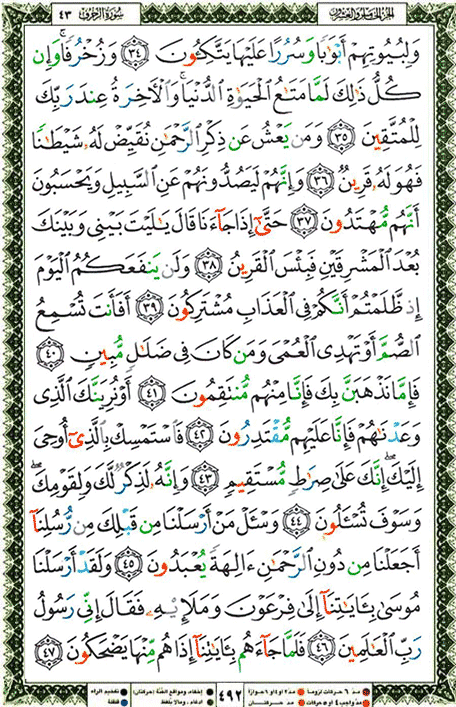 الجزء الخامس والعشرون سورة الزخرف ٤٣
وَلِبُيُوتِهِمْ أَبْوَٰبًا وَسُرُرًا عَلَيْهَا يَتَّكِـُٔونَ ٣٤ وَزُخْرُفًا ۚ وَإِن
كُلُّ ذَٰلِكَ لَمَّا مَتَـٰعُ الْحَيَوٰةِ الدُّنْيَا ۚ وَالْـَٔاخِرَةُ عِندَ رَبِّكَ
لِلْمُتَّقِينَ ٣٥ وَمَن يَعْشُ عَن ذِكْرِ الرَّحْمَـٰنِ نُقَيِّضْ لَهُۥ شَيْطَـٰنًا
فَهُوَ لَهُۥ قَرِينٌ ٣٦ وَإِنَّهُمْ لَيَصُدُّونَهُمْ عَنِ السَّبِيلِ وَيَحْسَبُونَ
أَنَّهُم مُّهْتَدُونَ ٣٧ حَتَّىٰٓ إِذَا جَآءَنَا قَالَ يَـٰلَيْتَ بَيْنِى وَبَيْنَكَ
بُعْدَ الْمَشْرِقَيْنِ فَبِئْسَ الْقَرِينُ ٣٨ وَلَن يَنفَعَكُمُ الْيَوْمَ
إِذ ظَّلَمْتُمْ أَنَّكُمْ فِى الْعَذَابِ مُشْتَرِكُونَ ٣٩ أَفَأَنتَ تُسْمِعُ
الصُّمَّ أَوْ تَهْدِى الْعُمْىَ وَمَن كَانَ فِى ضَلَـٰلٍ مُّبِينٍ ٤٠
فَإِمَّا نَذْهَبَنَّ بِكَ فَإِنَّا مِنْهُم مُّنتَقِمُونَ ٤١ أَوْ نُرِيَنَّكَ الَّذِى
وَعَدْنَـٰهُمْ فَإِنَّا عَلَيْهِم مُّقْتَدِرُونَ ٤٢ فَاسْتَمْسِكْ بِالَّذِىٓ أُوحِىَ
إِلَيْكَ ۖ إِنَّكَ عَلَىٰ صِرَٰطٍ مُّسْتَقِيمٍ ٤٣ وَإِنَّهُۥ لَذِكْرٌ لَّكَ وَلِقَوْمِكَ ۖ
وَسَوْفَ تُسْـَٔلُونَ ٤٤ وَسْـَٔلْ مَنْ أَرْسَلْنَا مِن قَبْلِكَ مِن رُّسُلِنَآ
أَجَعَلْنَا مِن دُونِ الرَّحْمَـٰنِ ءَالِهَةً يُعْبَدُونَ ٤٥ وَلَقَدْ أَرْسَلْنَا
مُوسَىٰ بِـَٔايَـٰتِنَآ إِلَىٰ فِرْعَوْنَ وَمَلَإِيْهِۦ فَقَالَ إِنِّى رَسُولُ
رَبِّ الْعَـٰلَمِينَ ٤٦ فَلَمَّا جَآءَهُم بِـَٔايَـٰتِنَآ إِذَا هُم مِّنْهَا يَضْحَكُونَ ٤٧
مدّ ٦ حركات لزوماً مدّ ٢ أو ٤ أو ٦ جوازاً إخفاء، ومواقع الغنّة (حركتان) تفخيم الراء
مدّ واجب ٤ أو ٥ حركات مدّ حركتان ٤٩٢ إدغام، وما لا يُلفظ قلقلة